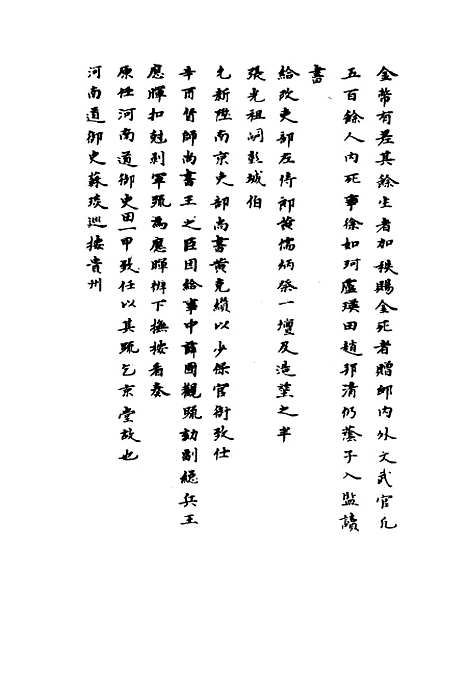 金幣有差其餘生者加秩賜金死者贈卹內外文武官凡
五百餘人內死事徐如珂盧瑛田趙邦清仍蔭子入監讀
書
給改吏部左侍郎黃儒炳祭一壇及造塋之半
張光祖嗣彭城伯
允新陞南京吏部尚書黃克纘以少保官銜致仕
辛酉督師尚書王之臣因給事中薛國觀疏劾副總兵王
應暉扣剋剥軍疏為應暉辨下撫按看奏
原任河南道御史田一甲致任以其疏乞京堂故也
河南道御史蘇琰巡按貴州